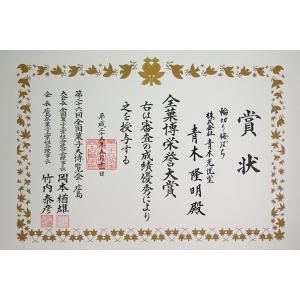 賞状
輪切り梅ばち
株式会社 青木光悦堂
青木隆明殿
全菓博栄誉大賞
右は審査の成績優秀により
之を授与する
平成二十五年五月十一日
第二十六回全国菓子大博覧会・広島
大会長 全国菓子工業組合連合会理事長 岡本楢雄
会長 広島県菓子工業組合理事長 竹内泰彦